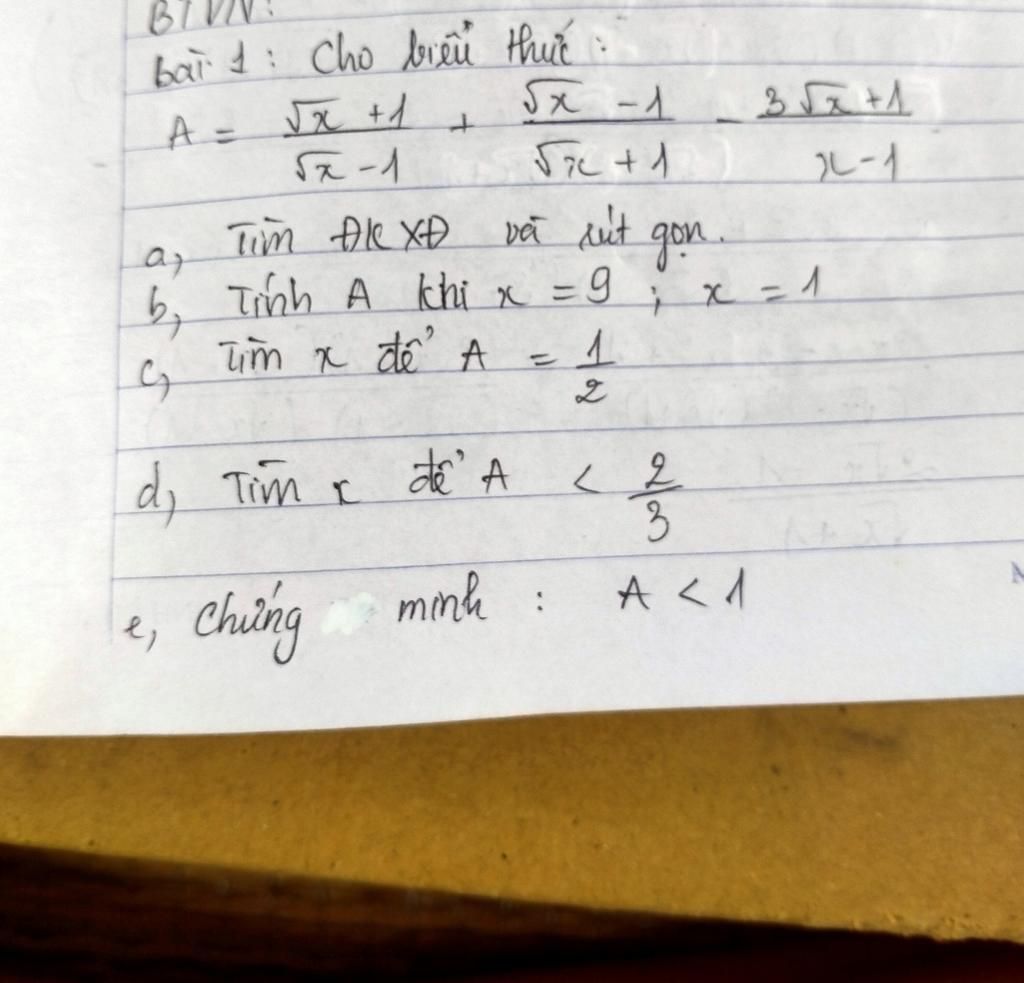 BTVN:
bài 1: Cho biểu thức:
A = \frac{\sqrt{x}+1}{\sqrt{x}-1} + \frac{\sqrt{x}-1}{\sqrt{x}+1} - \frac{3\sqrt{x}+1}{x-1}
a, Tìm ĐKXĐ và rút gọn.
b, Tính A khi x = 9 ; x = 1
c, Tìm x để A = \frac{1}{2}
d, Tìm x để A < \frac{2}{3}
e, Chứng minh : A < 1